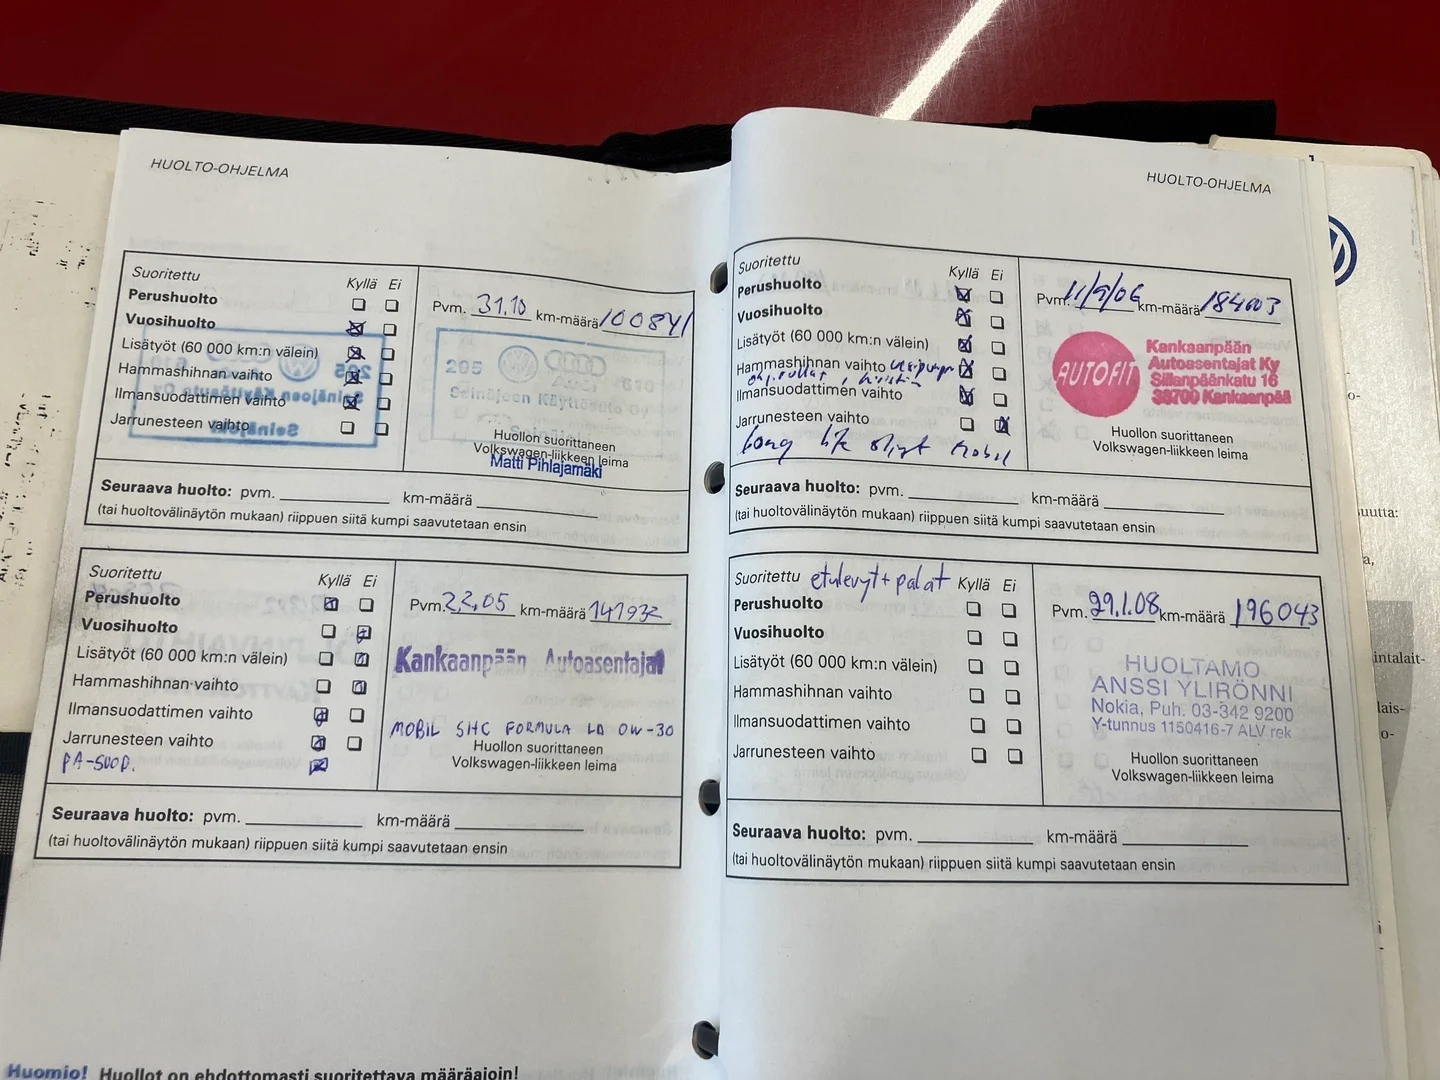 HUOLTO-OHJELMA
Suoritettu
Kyllä Ei
Perushuolto
Vuosihuolto
Lisätyöt (60 000 km:n välein)
Hammashihnan vaihto
Ilmansuodattimen vaihto
Jarrunesteen vaihto
Pvm. 31.10 km-määrä 100841
205
Audi
Seinäjoen Käyttöauto Oy
Huollon suorittaneen
Volkswagen-liikkeen leima
Matti Pihlajamäki
Seuraava huolto: pvm. km-määrä
(tai huoltovälinäytön mukaan) riippuen siitä kumpi saavutetaan ensin
Suoritettu
Kyllä Ei
Perushuolto
Vuosihuolto
Lisätyöt (60 000 km:n välein)
Hammashihnan vaihto
Ilmansuodattimen vaihto
Jarrunesteen vaihto
PA-SUOD.
Pvm. 2.2.05 km-määrä
Kankaanpään Autoasentajat
MOBIL SHC FORMULA LD 0W-30
Huollon suorittaneen
Volkswagen-liikkeen leima
Seuraava huolto: pvm. km-määrä
(tai huoltovälinäytön mukaan) riippuen siitä kumpi saavutetaan ensin
Huomio! Huollot on ehdottomasti suoritettava määräajoin!
HUOLTO-OHJELMA
Suoritettu
Kyllä Ei
Perushuolto
Vuosihuolto
Lisätyöt (60 000 km:n välein)
Hammashihnan vaihto
Ilmansuodattimen vaihto
Jarrunesteen vaihto
Long life öljyt Mobil
Pvm. 11/9/06 km-määrä 184003
AUTOFIT
Kankaanpään
Autoasentajat Ky
Sillanpäänkatu 16
38700 Kankaanpää
Huollon suorittaneen
Volkswagen-liikkeen leima
Seuraava huolto: pvm. km-määrä
(tai huoltovälinäytön mukaan) riippuen siitä kumpi saavutetaan ensin
Suoritettu etulevyt+palat
Kyllä Ei
Perushuolto
Vuosihuolto
Lisätyöt (60 000 km:n välein)
Hammashihnan vaihto
Ilmansuodattimen vaihto
Jarrunesteen vaihto
Pvm. 29.1.08 km-määrä 196043
HUOLTAMO
ANSSI YLIRÖNNI
Nokia, Puh. 03-342 9200
Y-tunnus 1150416-7 ALV rek
Huollon suorittaneen
Volkswagen-liikkeen leima
Seuraava huolto: pvm. km-määrä
(tai huoltovälinäytön mukaan) riippuen siitä kumpi saavutetaan ensin